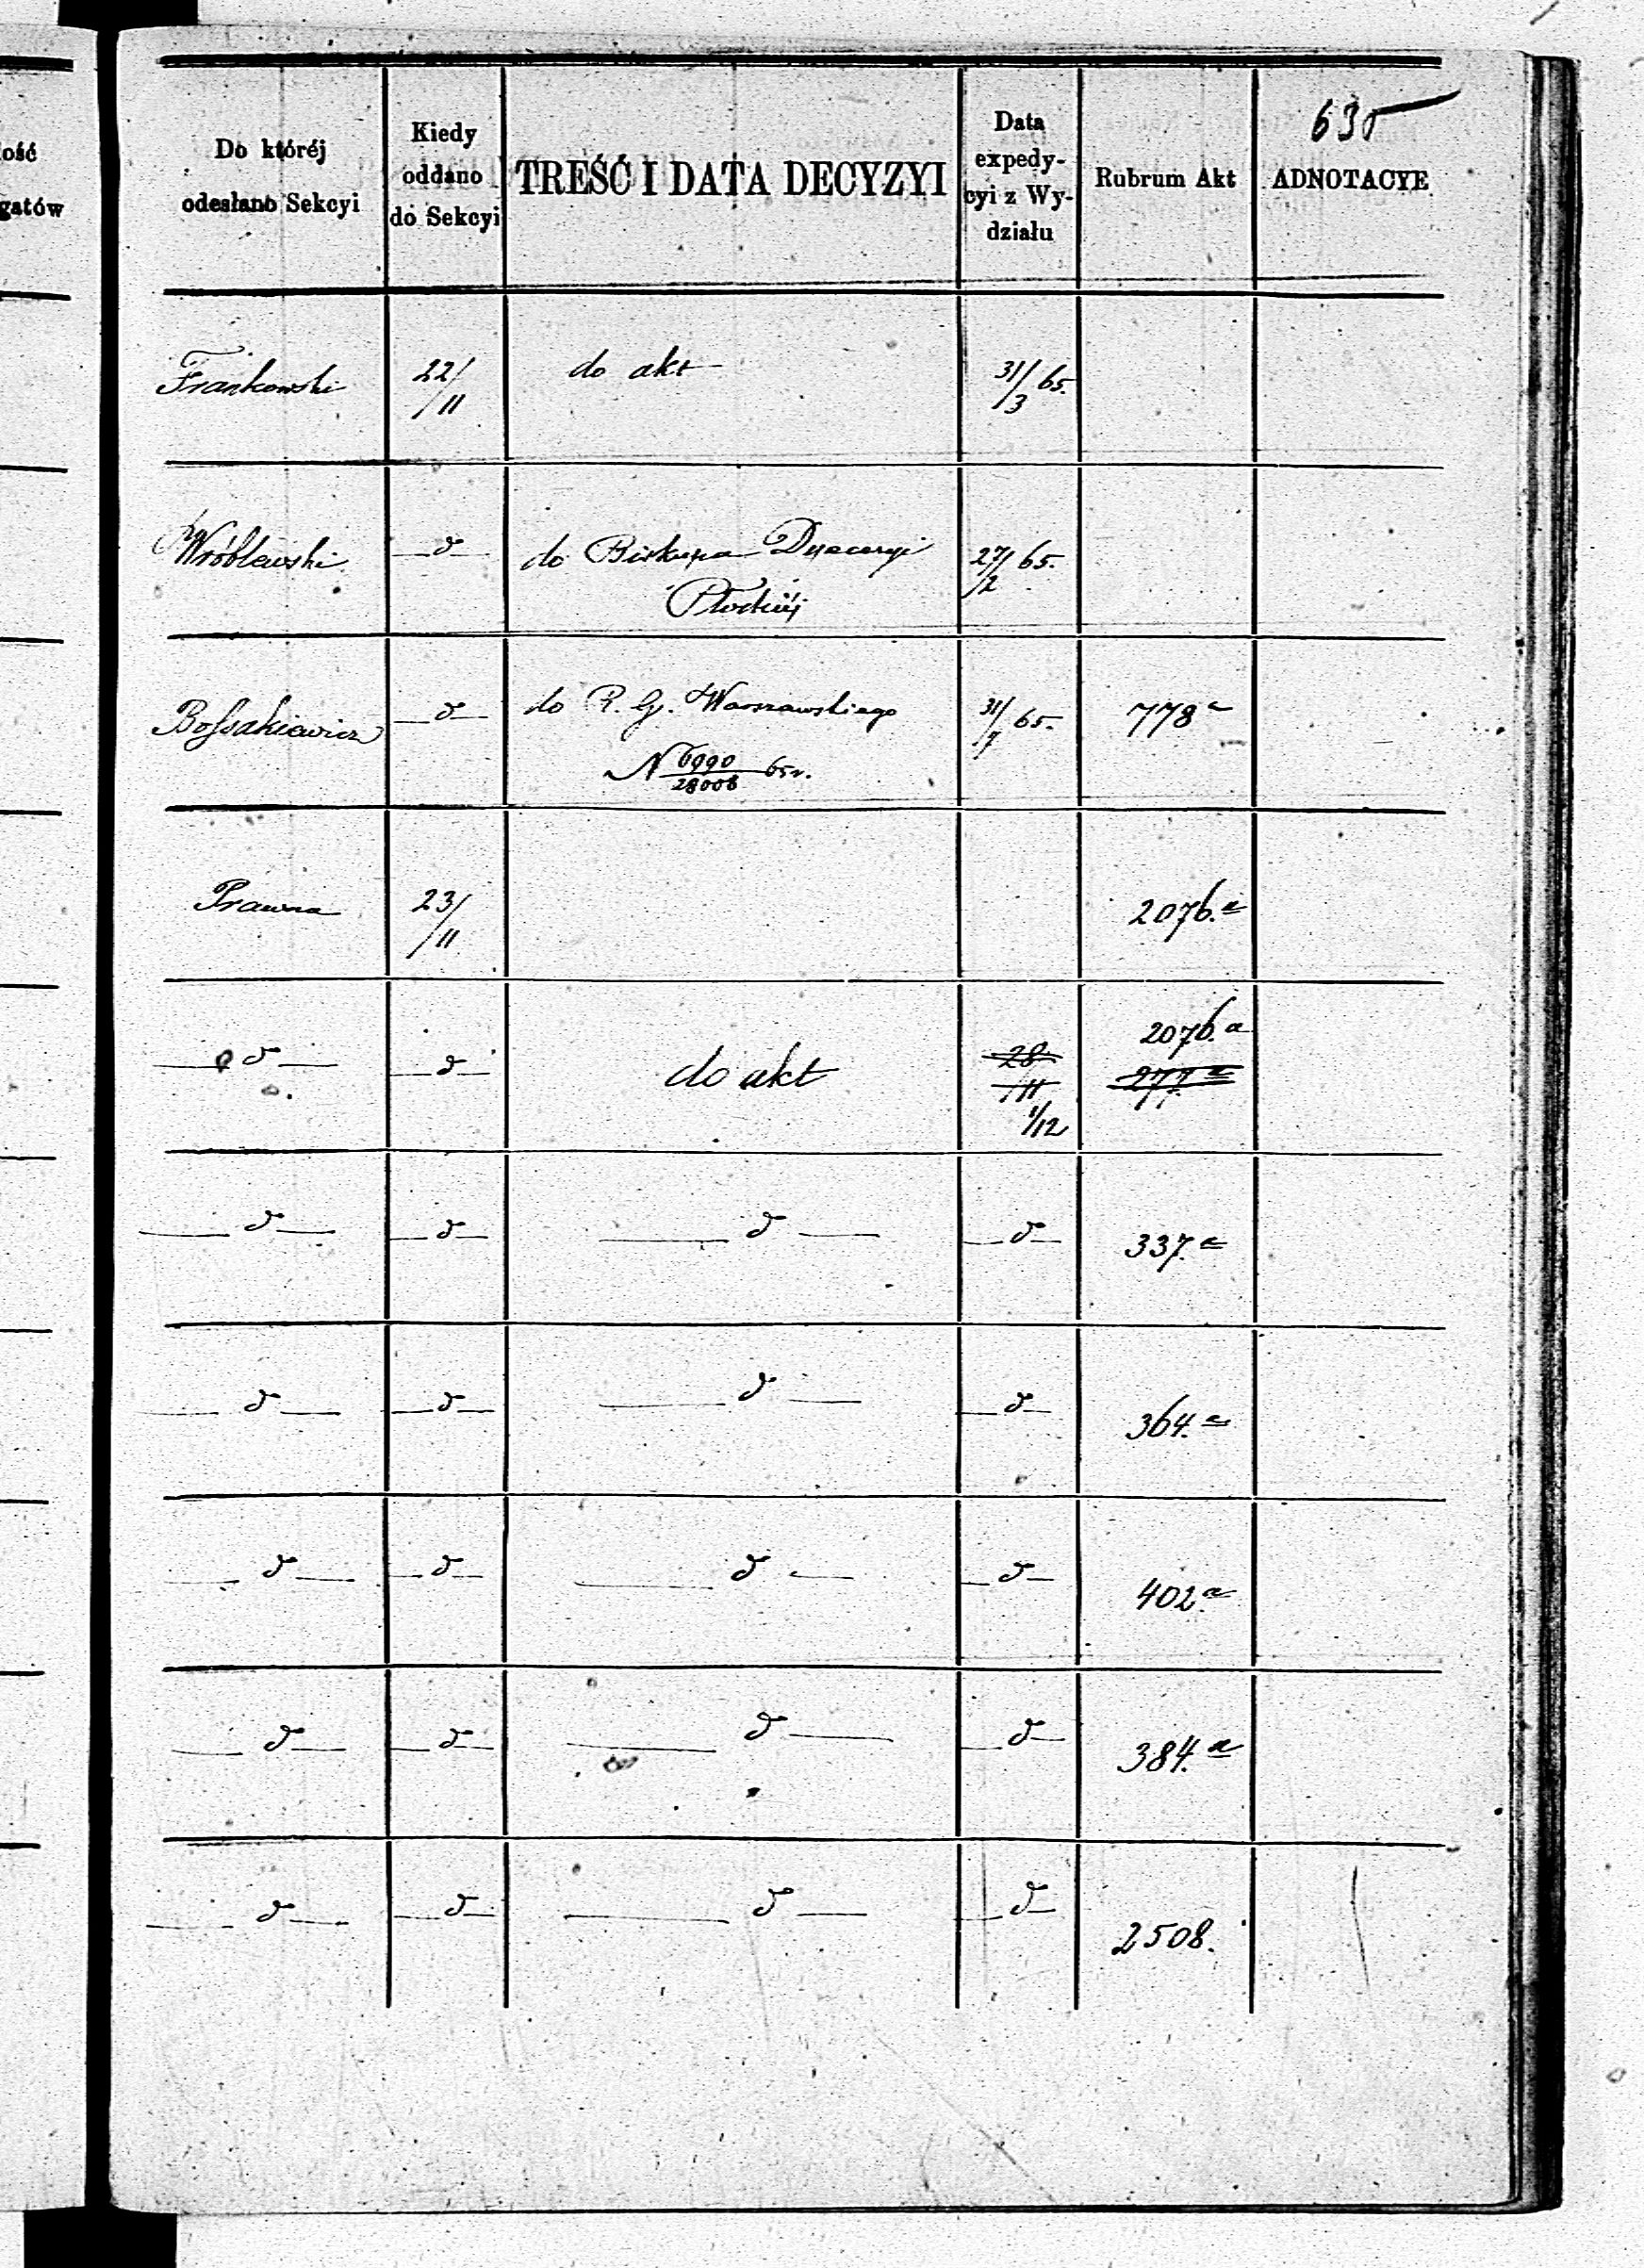 ość
gatów
635
Do któréj
odesłano Sekcyi
Kiedy
oddano
do Sekcyi
TREŚĆ I DATA DECYZYI
Data
expedy-
cyi z Wy-
działu
Rubrum Akt
ADNOTACYE
Frankowski 22/11 do akt 31/3 65.
Wróblewski —d— do Biskupa Dyecezyi 27/2 65.
Płockiéj
Bossakiewicz —d— do R. G. Warszawskiego 31/7 65. 778a
N 6990/28008 65r.
Prawna 23/11 2076.a
2076.a
—d— —d— do akt 28/11 277a
1/12
—d— —d— —d— —d— 337.a
—d— —d— —d— —d— 364.a
—d— —d— —d— —d— 402a
—d— —d— —d— —d— 384.a
—d— —d— —d— —d— 2508.